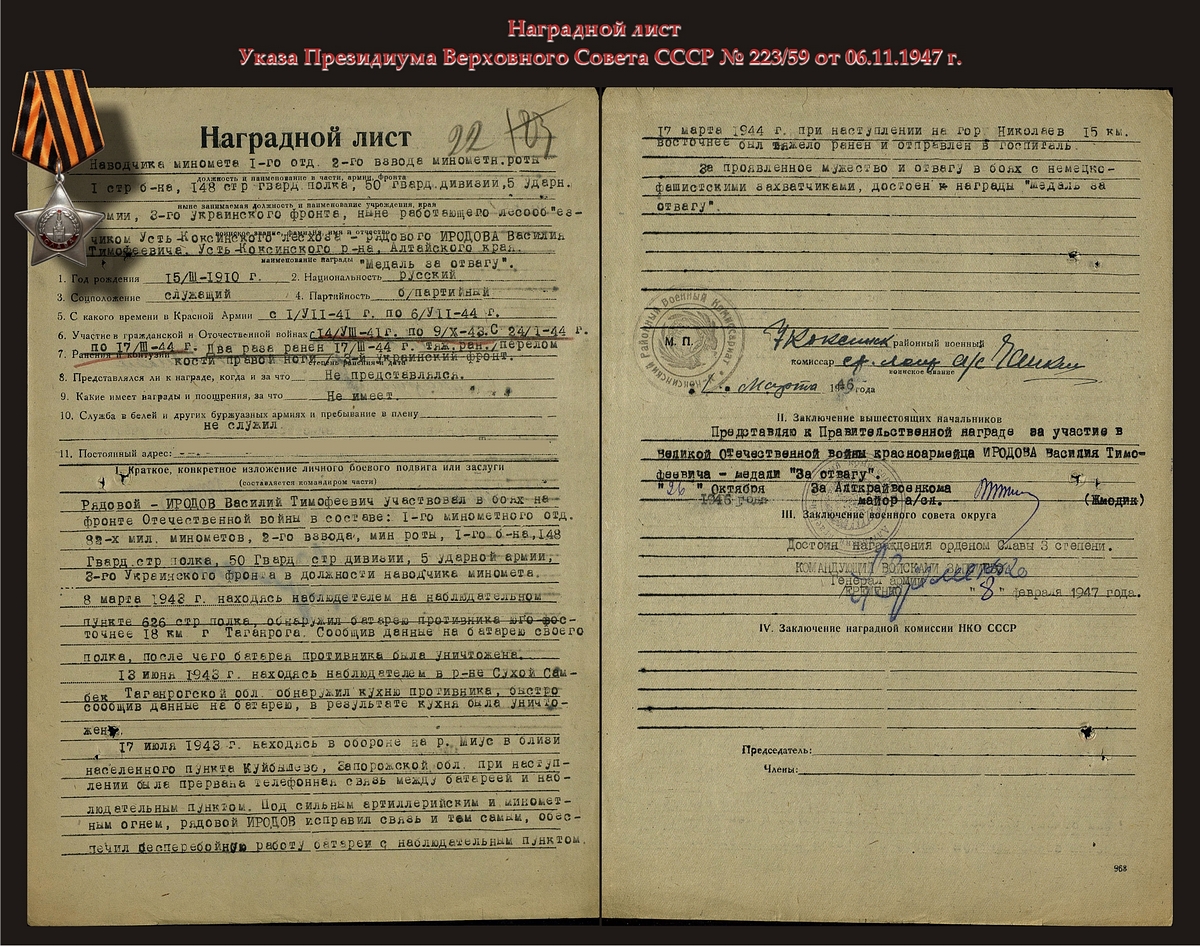 Наградной лист
Указа Президиума Верховного Совета СССР № 223/59 от 06.11.1947 г.
Наградной лист
22 105
Наводчика миномета I-го отд. 2-го взвода минометн.роты
должность и наименование в части, армии, фронта
I стр б-на, 148 стр гвард.полка, 50 гвард.дивизии,5 ударн.
ныне занимаемая должность и наименование учреждения, края
мии, 3-го Украинского фронта, ныне работающего лесооб"ез-
воинское звание, фамилия, имя и отчество
чиком Усть-Коксинского лесхоза - рядового ИРОДОВА Василия
Тимофеевича. Усть-Коксинского р-на, Алтайского края.
наименование награды "Медаль за отвагу".
1. Год рождения 15/Ш-1910 г. 2. Национальность русский
3. Соцположение служащий 4. Партийность б/партийный
5. С какого времени в Красной Армии с I/УII-41 г. по 6/УII-44 г.
6. Участие в гражданской и Отечественной войнах 14/УШ-41г. по 9/Х-43.С 24/I-44 г.
по 17/Ш-44 г. Два раза ранен 17/Ш-44 г. тяж.ран./перелом
7. Ранения и контузии кости правой ноги/ 3-й Украинский фронт.
8. Представлялся ли к награде, когда и за что Не представлялся.
9. Какие имеет награды и поощрения, за что Не имеет.
10. Служба в белой и других буржуазных армиях и пребывание в плену
не служил.
11. Постоянный адрес:
I. Краткое, конкретное изложение личного боевого подвига или заслуги
(составляется командиром части)
Рядовой - ИРОДОВ Василий Тимофеевич участвовал в боях на
фронте Отечественной войны в составе: I-го минометного отд.
82-х мил. минометов, 2-го взвода, мин роты, I-го б-на,148
Гвард.стр полка, 50 Гвард стр дивизии, 5 ударной армии,
3-го Украинского фронта в должности наводчика миномета.
8 марта 1943 г. находясь наблюдетелем на наблюдательном
пункте 626 стр полка, обнаружил батарею противника юго-вос-
точнее 18 км г Таганрога. Сообщив данные на батарею своего
полка, после чего батарея противника была уничтожена.
13 июня 1943 г. находясь наблюдателем в р-не Сухой Сам-
бек Таганрогской обл. обнаружил кухню противника, быстро
сообщив данные на батарею, в результате кухня была уничто-
жена.
17 июля 1943 г. находясь в обороне на р. Миус в близи
населенного пункта Куйбышево, Запорожской обл. при наступ-
лении была прервана телефонная связь между батареей и наб-
людательным пунктом. Под сильным артиллерийским и миномет-
ным огнем, рядовой ИРОДОВ исправил связь и тем самым, обес-
печил бесперебойную работу батареи с наблюдательным пунктом.
17 марта 1944 г. при наступлении на гор Николаев 15 км.
восточнее был тяжело ранен и отправлен в госпиталь.
За проявленное мужество и отвагу в боях с немецко-
фашистскими захватчиками, достоен к награды "медаль за
отвагу".
Районный Военный Комиссариат
М. П.
У Коксинск районный военный
комиссар
воинское звание
Марта 1946 года
II. Заключение вышестоящих начальников
Представляю к Правительственной награде за участие в
Великой Отечественной войны красноармейца ИРОДОВА Василия Тимо-
феевича - медали "За отвагу".
"26" Октября За Алткрайвоенкома
1946 года майор а/сл. (Жмодик)
III. Заключение военного совета округа
Достоин награждения орденом Славы 3 степени.
КОМАНДУЮЩИЙ ВОЙСКАМИ
Генерал армии
/ЕРЕМЕНКО "8" февраля 1947 года.
IV. Заключение наградной комиссии НКО СССР
Председатель:
Члены:
968